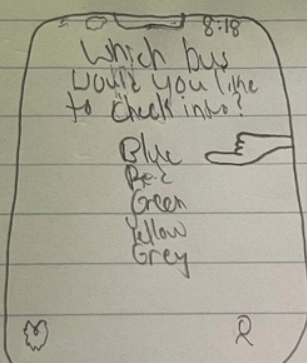 8:18
Which bus
would you like
to check into?
Blue
Red
Green
Yellow
Grey